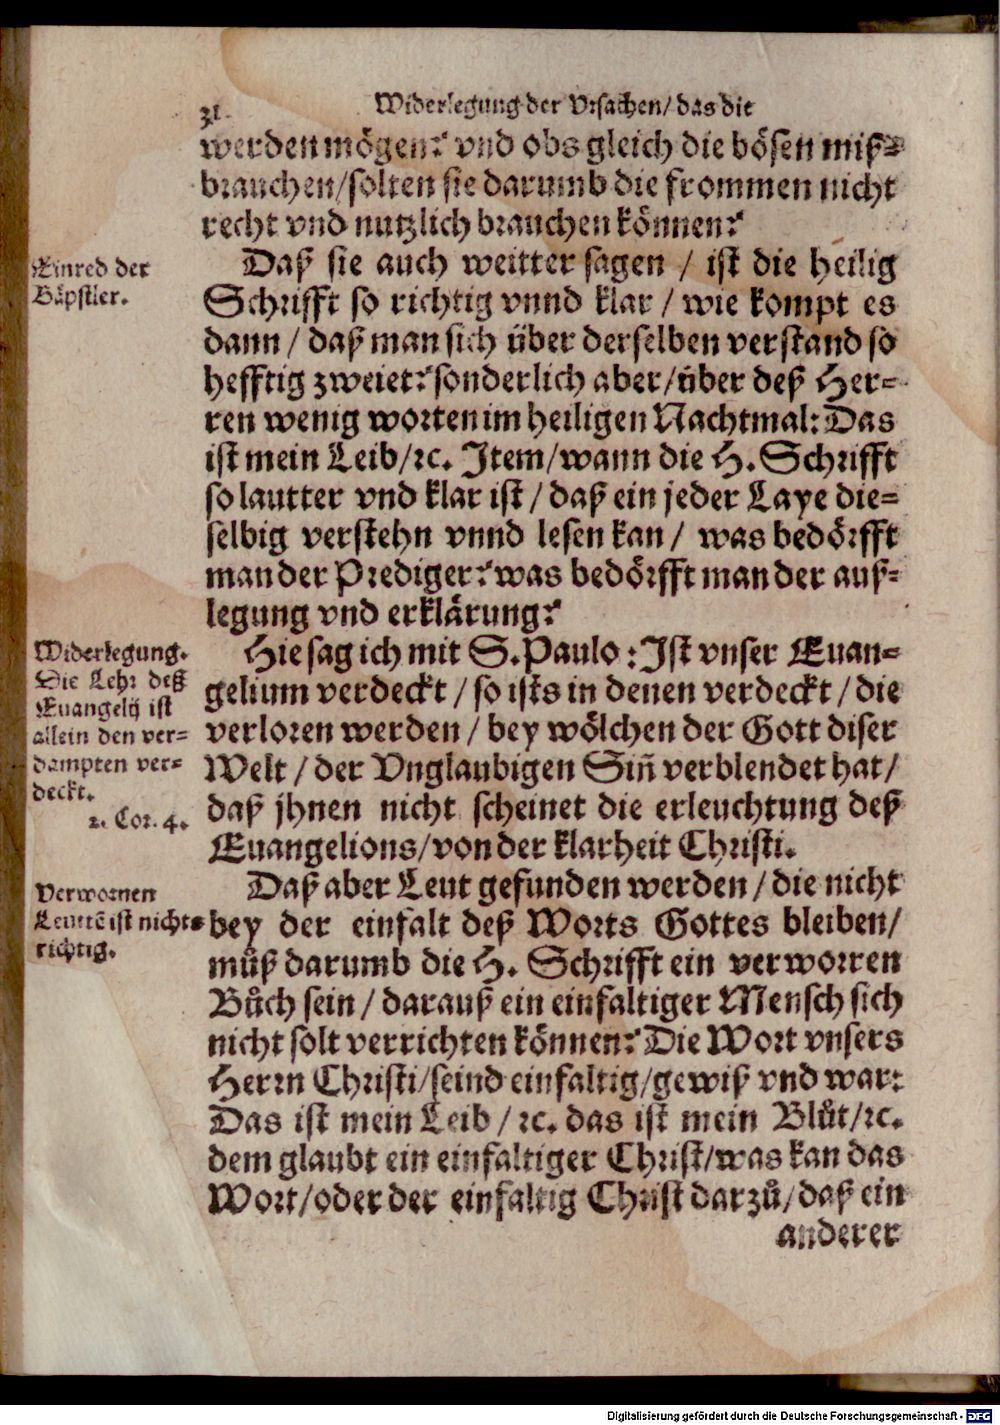 31. Widerlegung der Vrsachen/ das die
werden mögen? vnd obs gleich die bösen miß-
brauchen/solten sie darumb die frommen nicht
recht vnd nutzlich brauchen können?
Einred der
Bäpstler.
Daß sie auch weitter sagen / ist die heilig
Schrifft so richtig vnnd klar / wie kompt es
dann / daß man sich über derselben verstand so
hefftig zweiet? sonderlich aber/über deß Her-
ren wenig worten im heiligen Nachtmal: Das
ist mein Leib/ꝛc. Item/wann die H. Schrifft
so lautter vnd klar ist / daß ein jeder Laye die-
selbig verstehn vnnd lesen kan / was bedörfft
man der Prediger? was bedörfft man der auß-
legung vnd erklärung?
Widerlegung.
Die Lehr deß
Euangelij ist
allein den ver-
dampten ver-
deckt.
2. Cor. 4.
Hie sag ich mit S. Paulo: Ist vnser Euan-
gelium verdeckt / so ists in denen verdeckt / die
verloren werden / bey wölchen der Gott diser
Welt / der Vnglaubigen Siñ verblendet hat/
daß jhnen nicht scheinet die erleuchtung deß
Euangelions/von der klarheit Christi.
Verwornen
Leuttē ist nichts
richtig.
Daß aber Leut gefunden werden / die nicht
bey der einfalt deß Worts Gottes bleiben/
muͦß darumb die H. Schrifft ein verworren
Buͦch sein / darauß ein einfaltiger Mensch sich
nicht solt verrichten können? Die Wort vnsers
Herrn Christi/seind einfaltig/gewiß vnd war:
Das ist mein Leib / ꝛc. das ist mein Bluͦt/ꝛc.
dem glaubt ein einfaltiger Christ/was kan das
Wort/oder der einfaltig Christ darzuͦ/daß ein
anderer
Digitalisierung gefördert durch die Deutsche Forschungsgemeinschaft - DFG